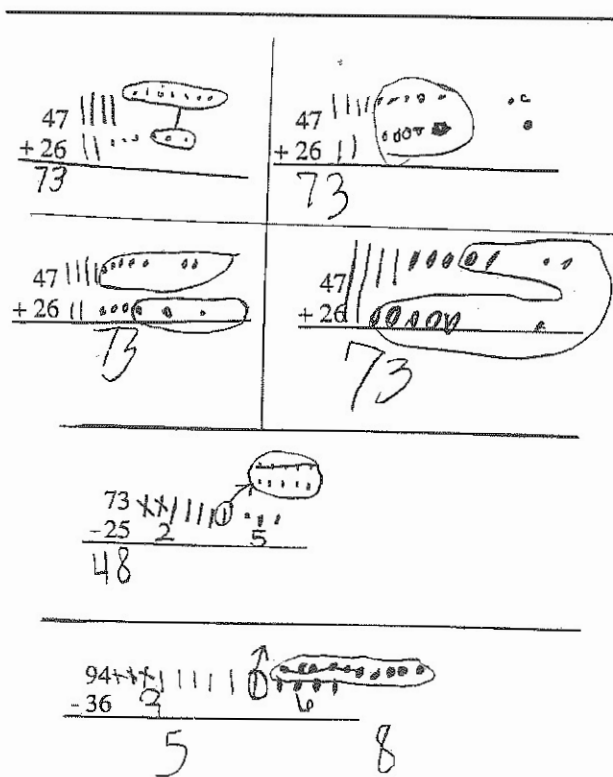 47
+ 26
73
47
+ 26
73
47
+ 26
73
47
+ 26
73
73
- 25 2 5
48
94
- 36 3 6
5 8